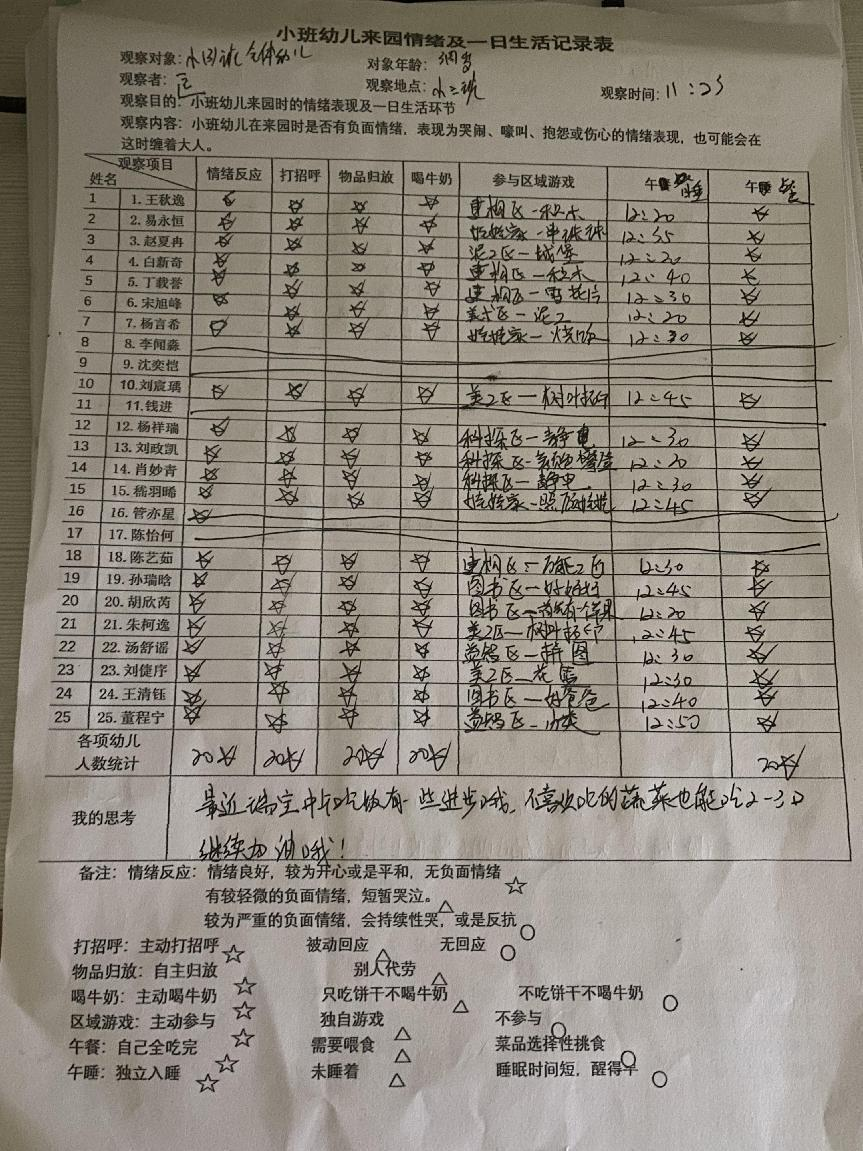 小班幼儿来园情绪及一日生活记录表
观察对象: 全体幼儿 对象年龄:
观察者: 观察地点:小二班 观察时间:11:23
观察目的:小班幼儿来园时的情绪表现及一日生活环节
观察内容:小班幼儿在来园时是否有负面情绪,表现为哭闹、嚎叫、抱怨或伤心的情绪表现,也可能会在
这时缠着大人。
观察项目 姓名 情绪反应 打招呼 物品归放 喝牛奶 参与区域游戏 午睡 午睡
1 1.王秋逸 ☆ ☆ ☆ ☆ 建构区-积木 12:20 ☆
2 2.易永恒 ☆ ☆ ☆ ☆ 娃娃家- 12:35 ☆
3 3.赵夏冉 ☆ ☆ ☆ ☆ 泥工区-城堡 12:20 ☆
4 4.白新奇 ☆ ☆ ☆ ☆ 建构区-积木 12:40 ☆
5 5.丁载誉 ☆ ☆ ☆ ☆ 建构区-雪花片 12:30 ☆
6 6.宋旭峰 ☆ ☆ ☆ ☆ 美术区-泥工 12:20 ☆
7 7.杨言希 ☆ ☆ ☆ ☆ 娃娃家-烧饭 12:30 ☆
8 8.李闻淼
9 9.沈奕恺
10 10.刘宸瑀 ☆ ☆ ☆ ☆ 美工区-树叶拓印 12:45 ☆
11 11.钱进
12 12.杨祥瑞 ☆ ☆ ☆ ☆ 科探区-静电 12:30 ☆
13 13.刘政凯 ☆ ☆ ☆ ☆ 科探区- 12:20 ☆
14 14.肖妙青 ☆ ☆ ☆ ☆ 科探区-静电 12:30 ☆
15 15.嵇羽晞 ☆ ☆ ☆ ☆ 娃娃家-照顾娃娃 12:45 ☆
16 16.管亦星 ☆
17 17.陈怡何
18 18.陈艺茹 ☆ ☆ ☆ ☆ 建构区-万能工匠 12:30 ☆
19 19.孙瑞晗 ☆ ☆ ☆ ☆ 图书区-好妈妈 12:45 ☆
20 20.胡欣芮 ☆ ☆ ☆ ☆ 图书区- 12:20 ☆
21 21.朱柯逸 ☆ ☆ ☆ ☆ 美工区-树叶拓印 12:45 ☆
22 22.汤舒谣 ☆ ☆ ☆ ☆ 益智区-拼图 12:30 ☆
23 23.刘倢序 ☆ ☆ ☆ ☆ 美工区-花 12:30 ☆
24 24.王清钰 ☆ ☆ ☆ ☆ 图书区-好爸爸 12:40 ☆
25 25.董程宁 ☆ ☆ ☆ ☆ 益智区-分类 12:50 ☆
各项幼儿
人数统计 20☆ 20☆ 20☆ 20☆ 20☆
我的思考 最近 宝中午吃饭有一些进步哦,不喜欢吃的蔬菜也能吃2-3口
继续加油哦!
备注:情绪反应:情绪良好,较为开心或是平和,无负面情绪 ☆
有较轻微的负面情绪,短暂哭泣。 △
较为严重的负面情绪,会持续性哭,或是反抗 ○
打招呼:主动打招呼 ☆ 被动回应 △ 无回应 ○
物品归放:自主归放 ☆ 别人代劳 △
喝牛奶:主动喝牛奶 ☆ 只吃饼干不喝牛奶 △ 不吃饼干不喝牛奶 ○
区域游戏:主动参与 ☆ 独自游戏 △ 不参与 ○
午餐:自己全吃完 ☆ 需要喂食 △ 菜品选择性挑食 ○
午睡:独立入睡 ☆ 未睡着 △ 睡眠时间短,醒得早 ○